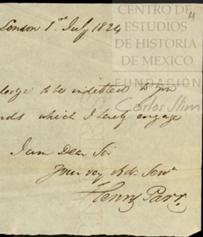 CENTRO DE
ESTUDIOS
DE HISTORIA
DE MEXICO
FUNDACIÓN
Carlos Slim
4
London 1st July 1824
to be indebted to you
which I
engage
I am Dear Sir
Your very Obt. Servt
Henry Parr